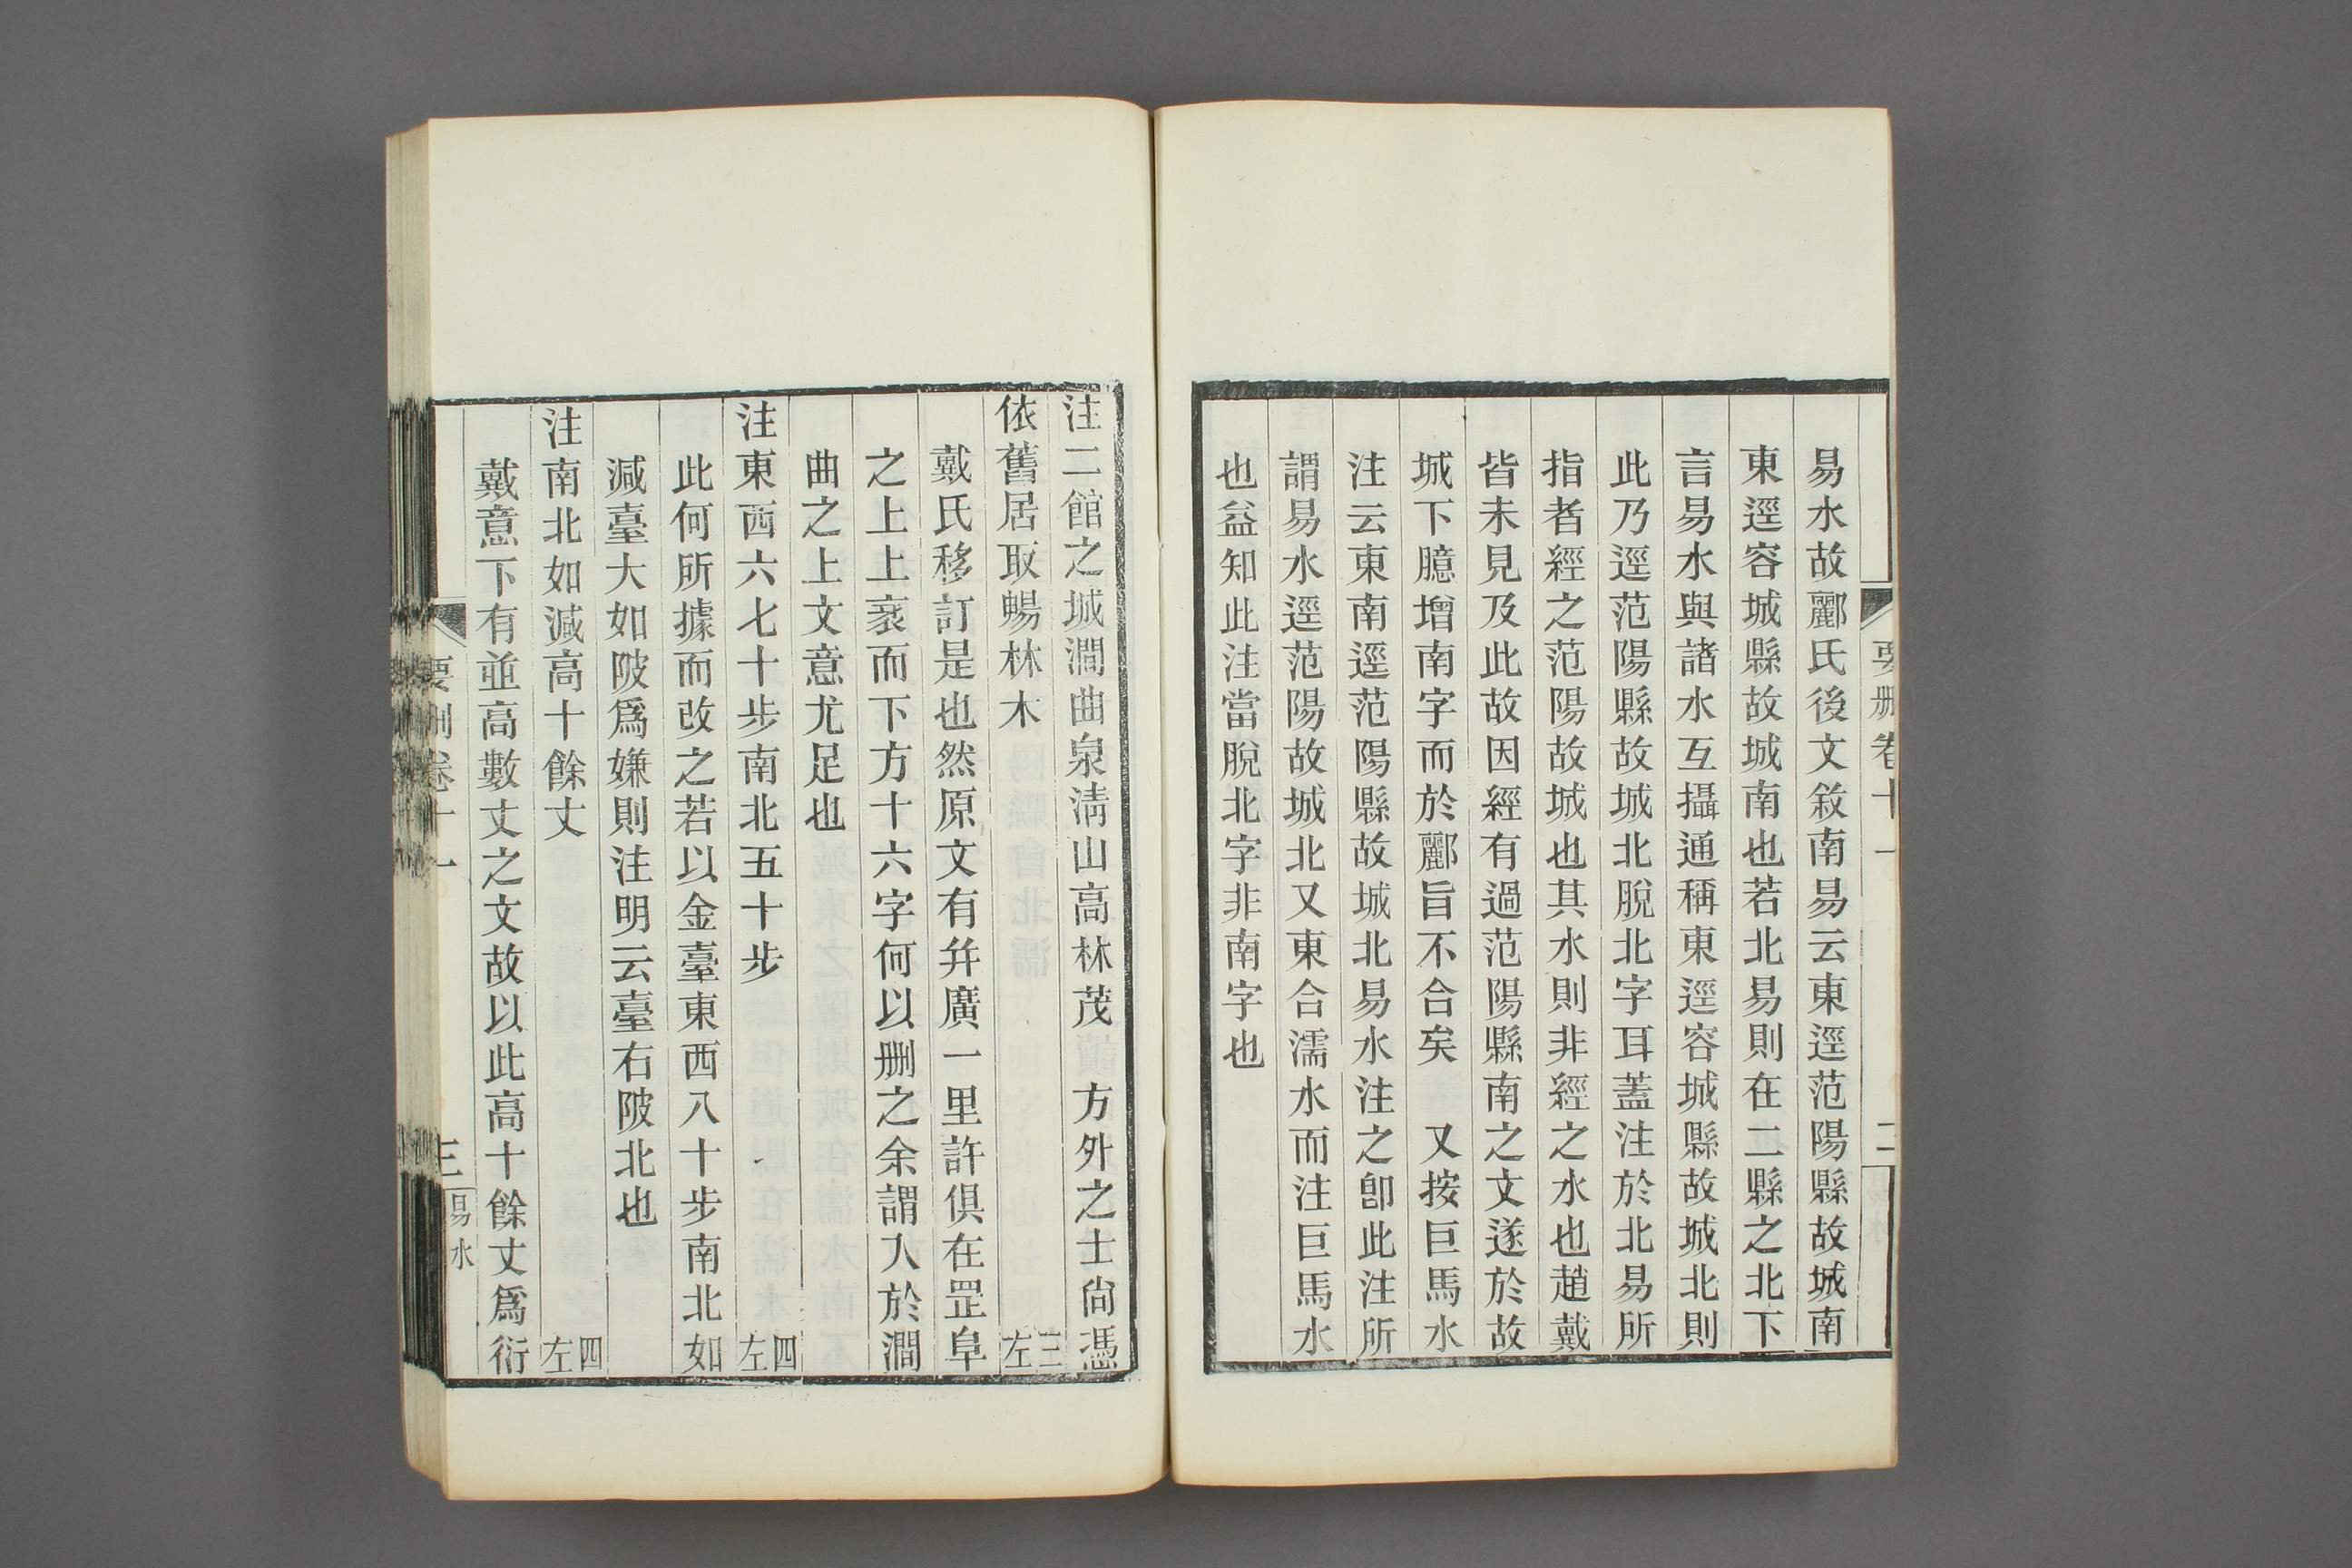 要刪卷十一
二
易水故酈氏後文敘南易云東逕范陽縣故城南
東逕容城縣故城南也若北易則在二縣之北下
言易水與諸水互攝通稱東逕容城縣故城北則
此乃逕范陽縣故城北脫北字耳蓋注於北易所
指者經之范陽故城也其水則非經之水也趙戴
皆未見及此故因經有過范陽縣南之文遂於故
城下臆增南字而於酈旨不合矣　又按巨馬水
注云東南逕范陽縣故城北易水注之卽此注所
謂易水逕范陽故城北又東合濡水而注巨馬水
也益知此注當脫北字非南字也
注二館之城澗曲泉淸山高林茂　方外之士尙憑
依舊居取暢林木　三左
戴氏移訂是也然原文有幷廣一里許俱在罡阜
之上上衺而下方十六字何以刪之余謂入於澗
曲之上文意尤足也
注東西六七十步南北五十步　四左
此何所據而改之若以金臺東西八十步南北如
減臺大如陂爲嫌則注明云臺右陂北也
注南北如減高十餘丈　四左
戴意下有並高數丈之文故以此高十餘丈爲衍
要刪卷十一
三
易水